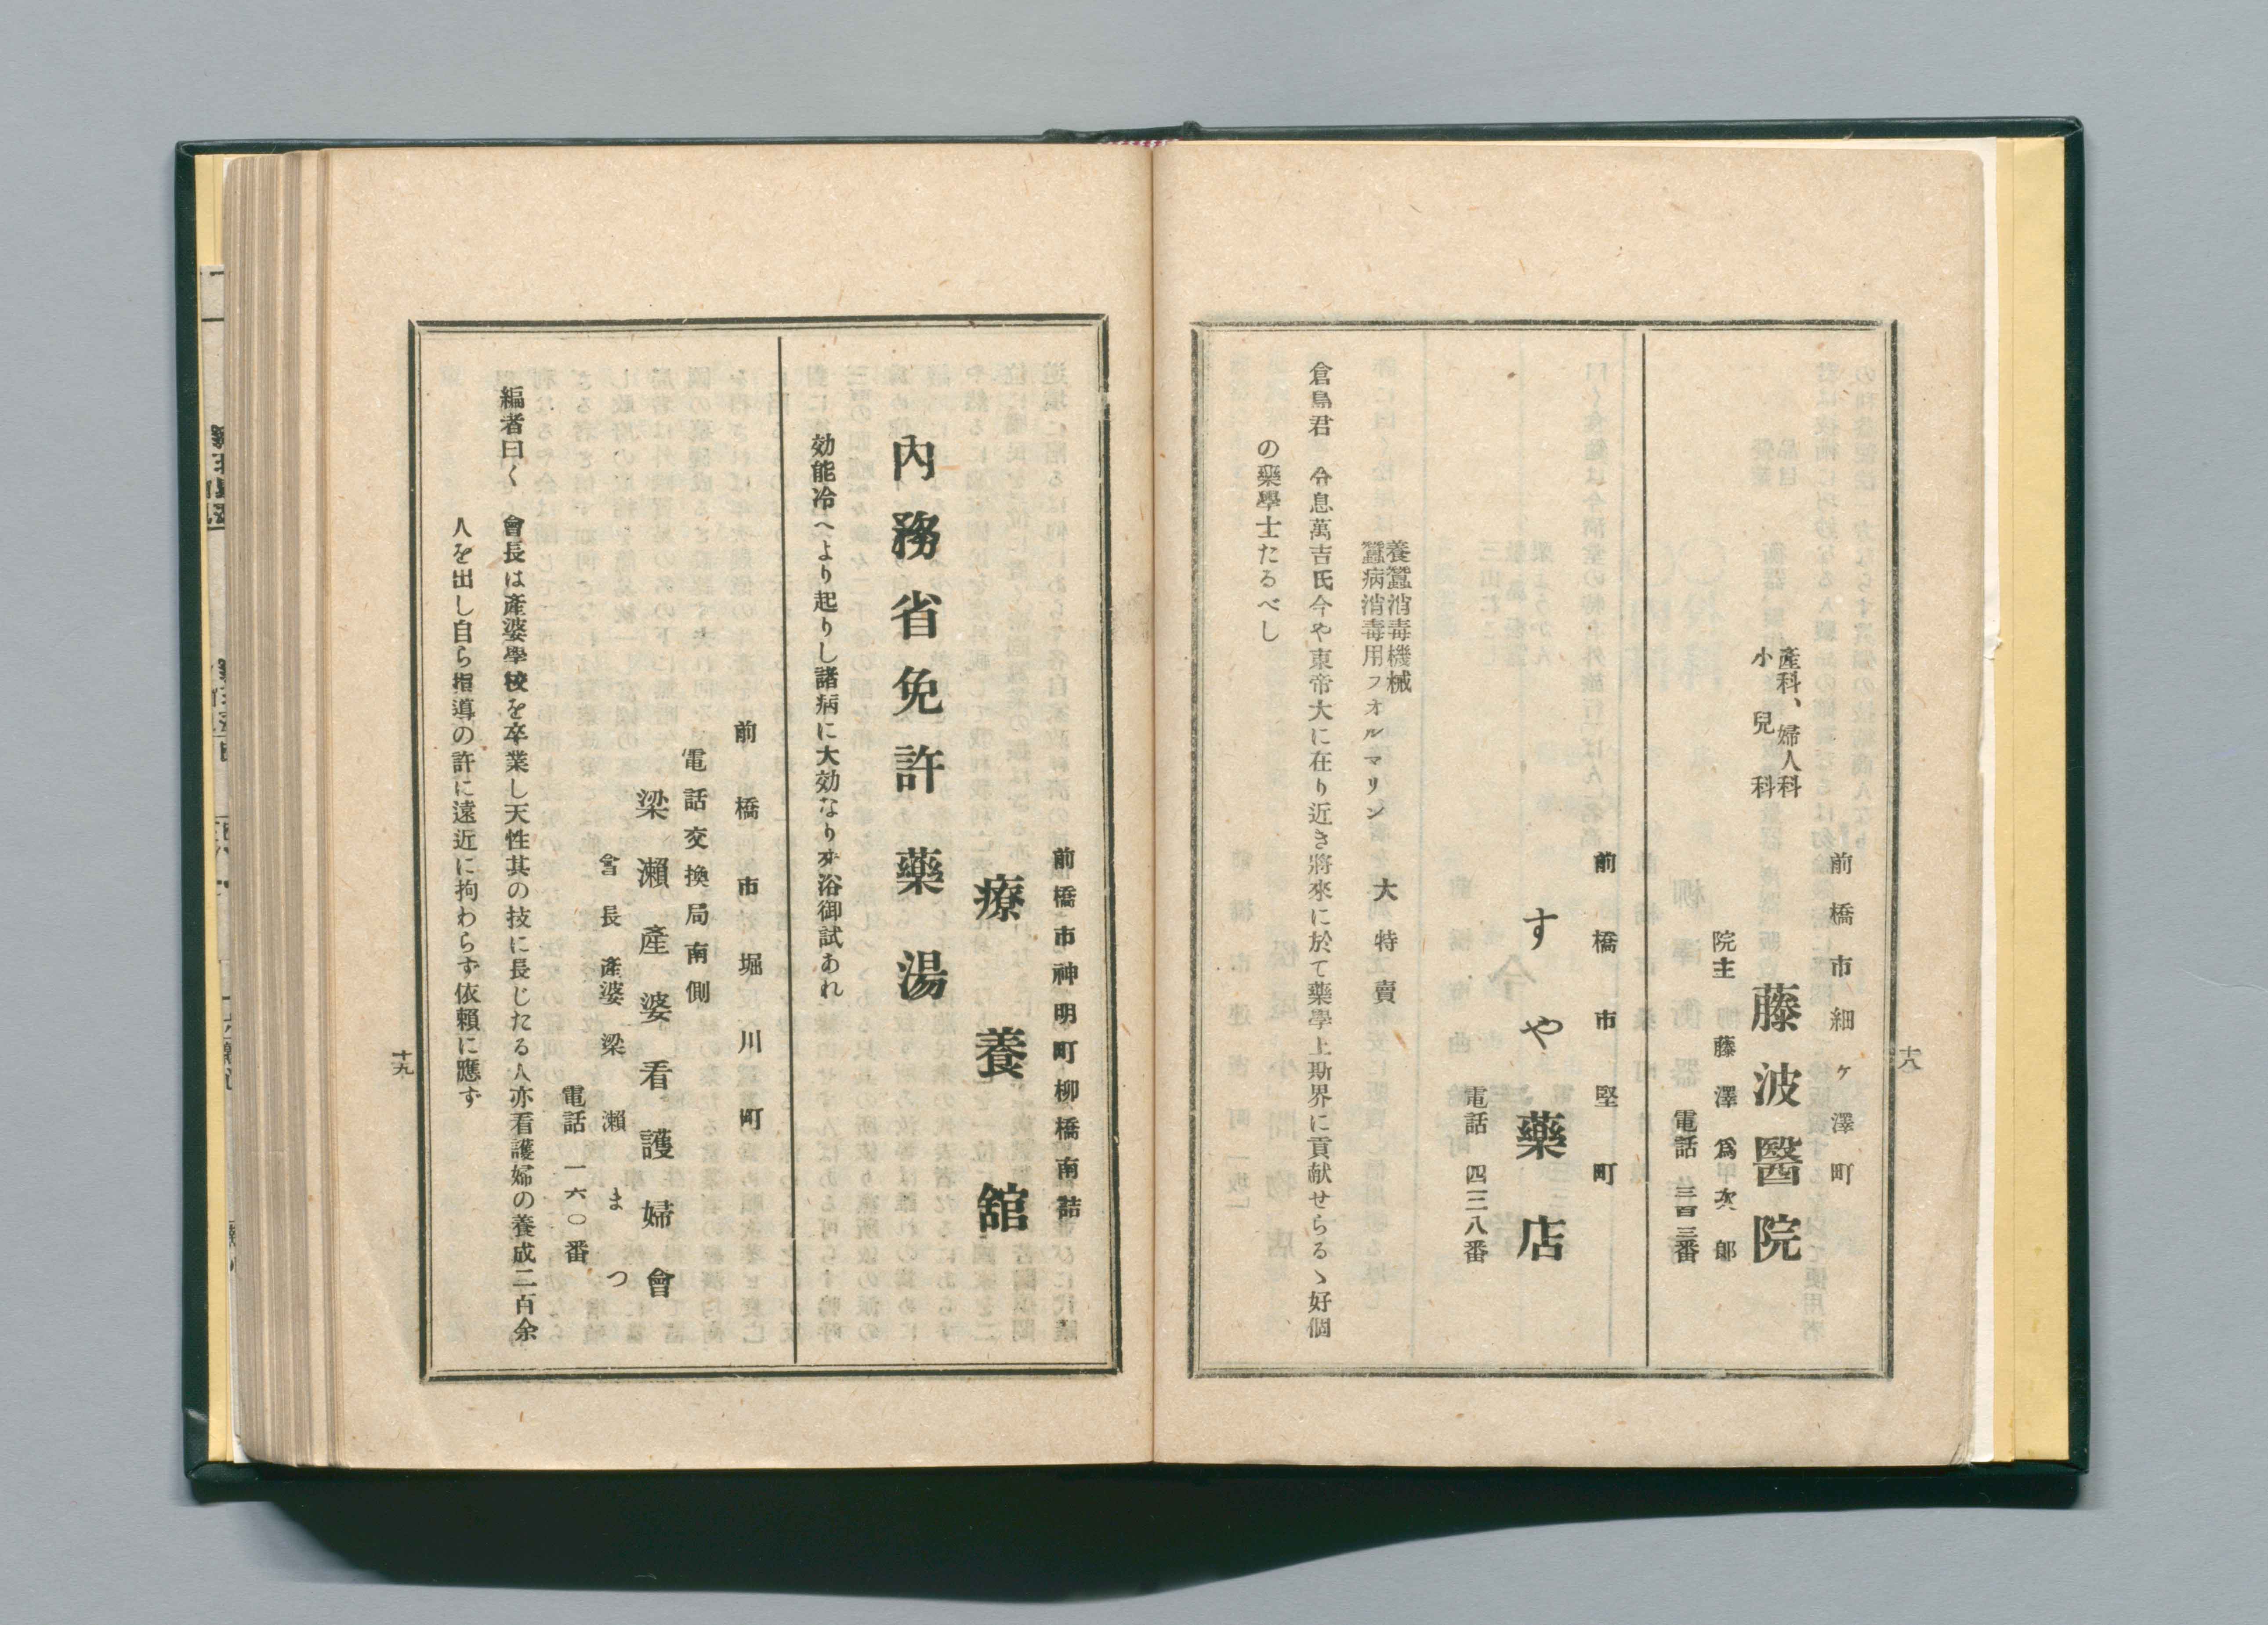 前橋市細ヶ澤町
藤波醫院
産科、婦人科
小兒科
院主 藤澤爲次郎
電話 三百三番
前橋市堅町
すや藥店
電話 四三八番
養蠶消毒機械
蠶病消毒用フオルマリン 大特賣
倉島君 令息萬吉氏今や東帝大に在り近き將來に於て藥學上斯界に貢献せらるゝ好個
の藥學士たるべし
十八
前橋市神明町柳橋南詰
療養舘
内務省免許藥湯
効能冷へより起りし諸病に大効なり御試あれ
前橋市堀川町
電話交換局南側
梁瀬産婆看護婦會
會長 産婆 梁瀬まつ
電話 一六〇番
編者曰く 會長は産婆學校を卒業し天性其の技に長じたる人亦看護婦の養成二百余
人を出し自ら指導の許に遠近に拘わらず依頼に應ず
十九